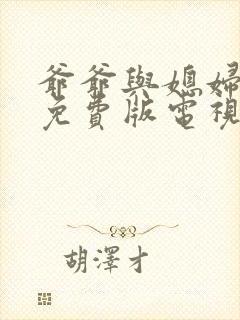 爺爺與媳婦
免費版電視
胡澤才